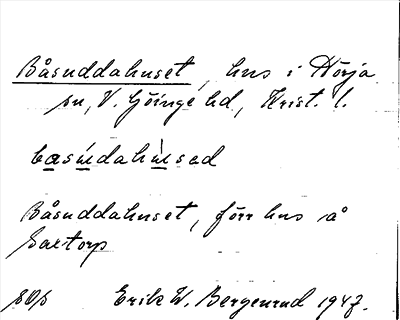 Båsuddahuset, hus i Hörja
sn, V. Göinge hd, Krist. l.
basúdahùsed
Båsuddahuset, förr hus å
Saxtorp
Erik W. Bergenrud 1947.